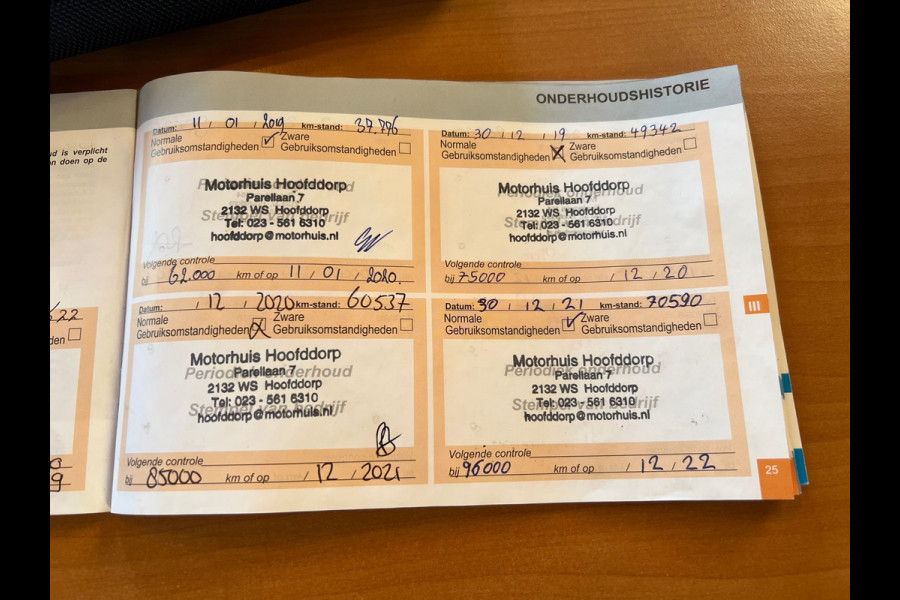 ONDERHOUDSHISTORIE
ud is verplicht
n doen op de
22
den
9
Datum: 11 / 01 / 2019 km-stand: 37.776
Normale Gebruiksomstandigheden ✓ Zware Gebruiksomstandigheden
Periodiek onderhoud
Stempel van bedrijf
Motorhuis Hoofddorp
Parellaan 7
2132 WS Hoofddorp
Tel: 023 - 561 6310
hoofddorp@motorhuis.nl
Volgende controle
bij 62.000 km of op 11 / 01 / 2020.
Datum: 30 / 12 / 19 km-stand: 49342
Normale Gebruiksomstandigheden X Zware Gebruiksomstandigheden
Periodiek onderhoud
Stempel van bedrijf
Motorhuis Hoofddorp
Parellaan 7
2132 WS Hoofddorp
Tel: 023 - 561 6310
hoofddorp@motorhuis.nl
Volgende controle
bij 75000 km of op / 12 / 20
Datum: / 12 / 2020 km-stand: 60537
Normale Gebruiksomstandigheden X Zware Gebruiksomstandigheden
Periodiek onderhoud
Stempel van bedrijf
Motorhuis Hoofddorp
Parellaan 7
2132 WS Hoofddorp
Tel: 023 - 561 6310
hoofddorp@motorhuis.nl
Volgende controle
bij 85000 km of op / 12 / 2021
Datum: 30 / 12 / 21 km-stand: 70590
Normale Gebruiksomstandigheden ✓ Zware Gebruiksomstandigheden
Periodiek onderhoud
Stempel van bedrijf
Motorhuis Hoofddorp
Parellaan 7
2132 WS Hoofddorp
Tel: 023 - 561 6310
hoofddorp@motorhuis.nl
Volgende controle
bij 96000 km of op / 12 / 22
III
25